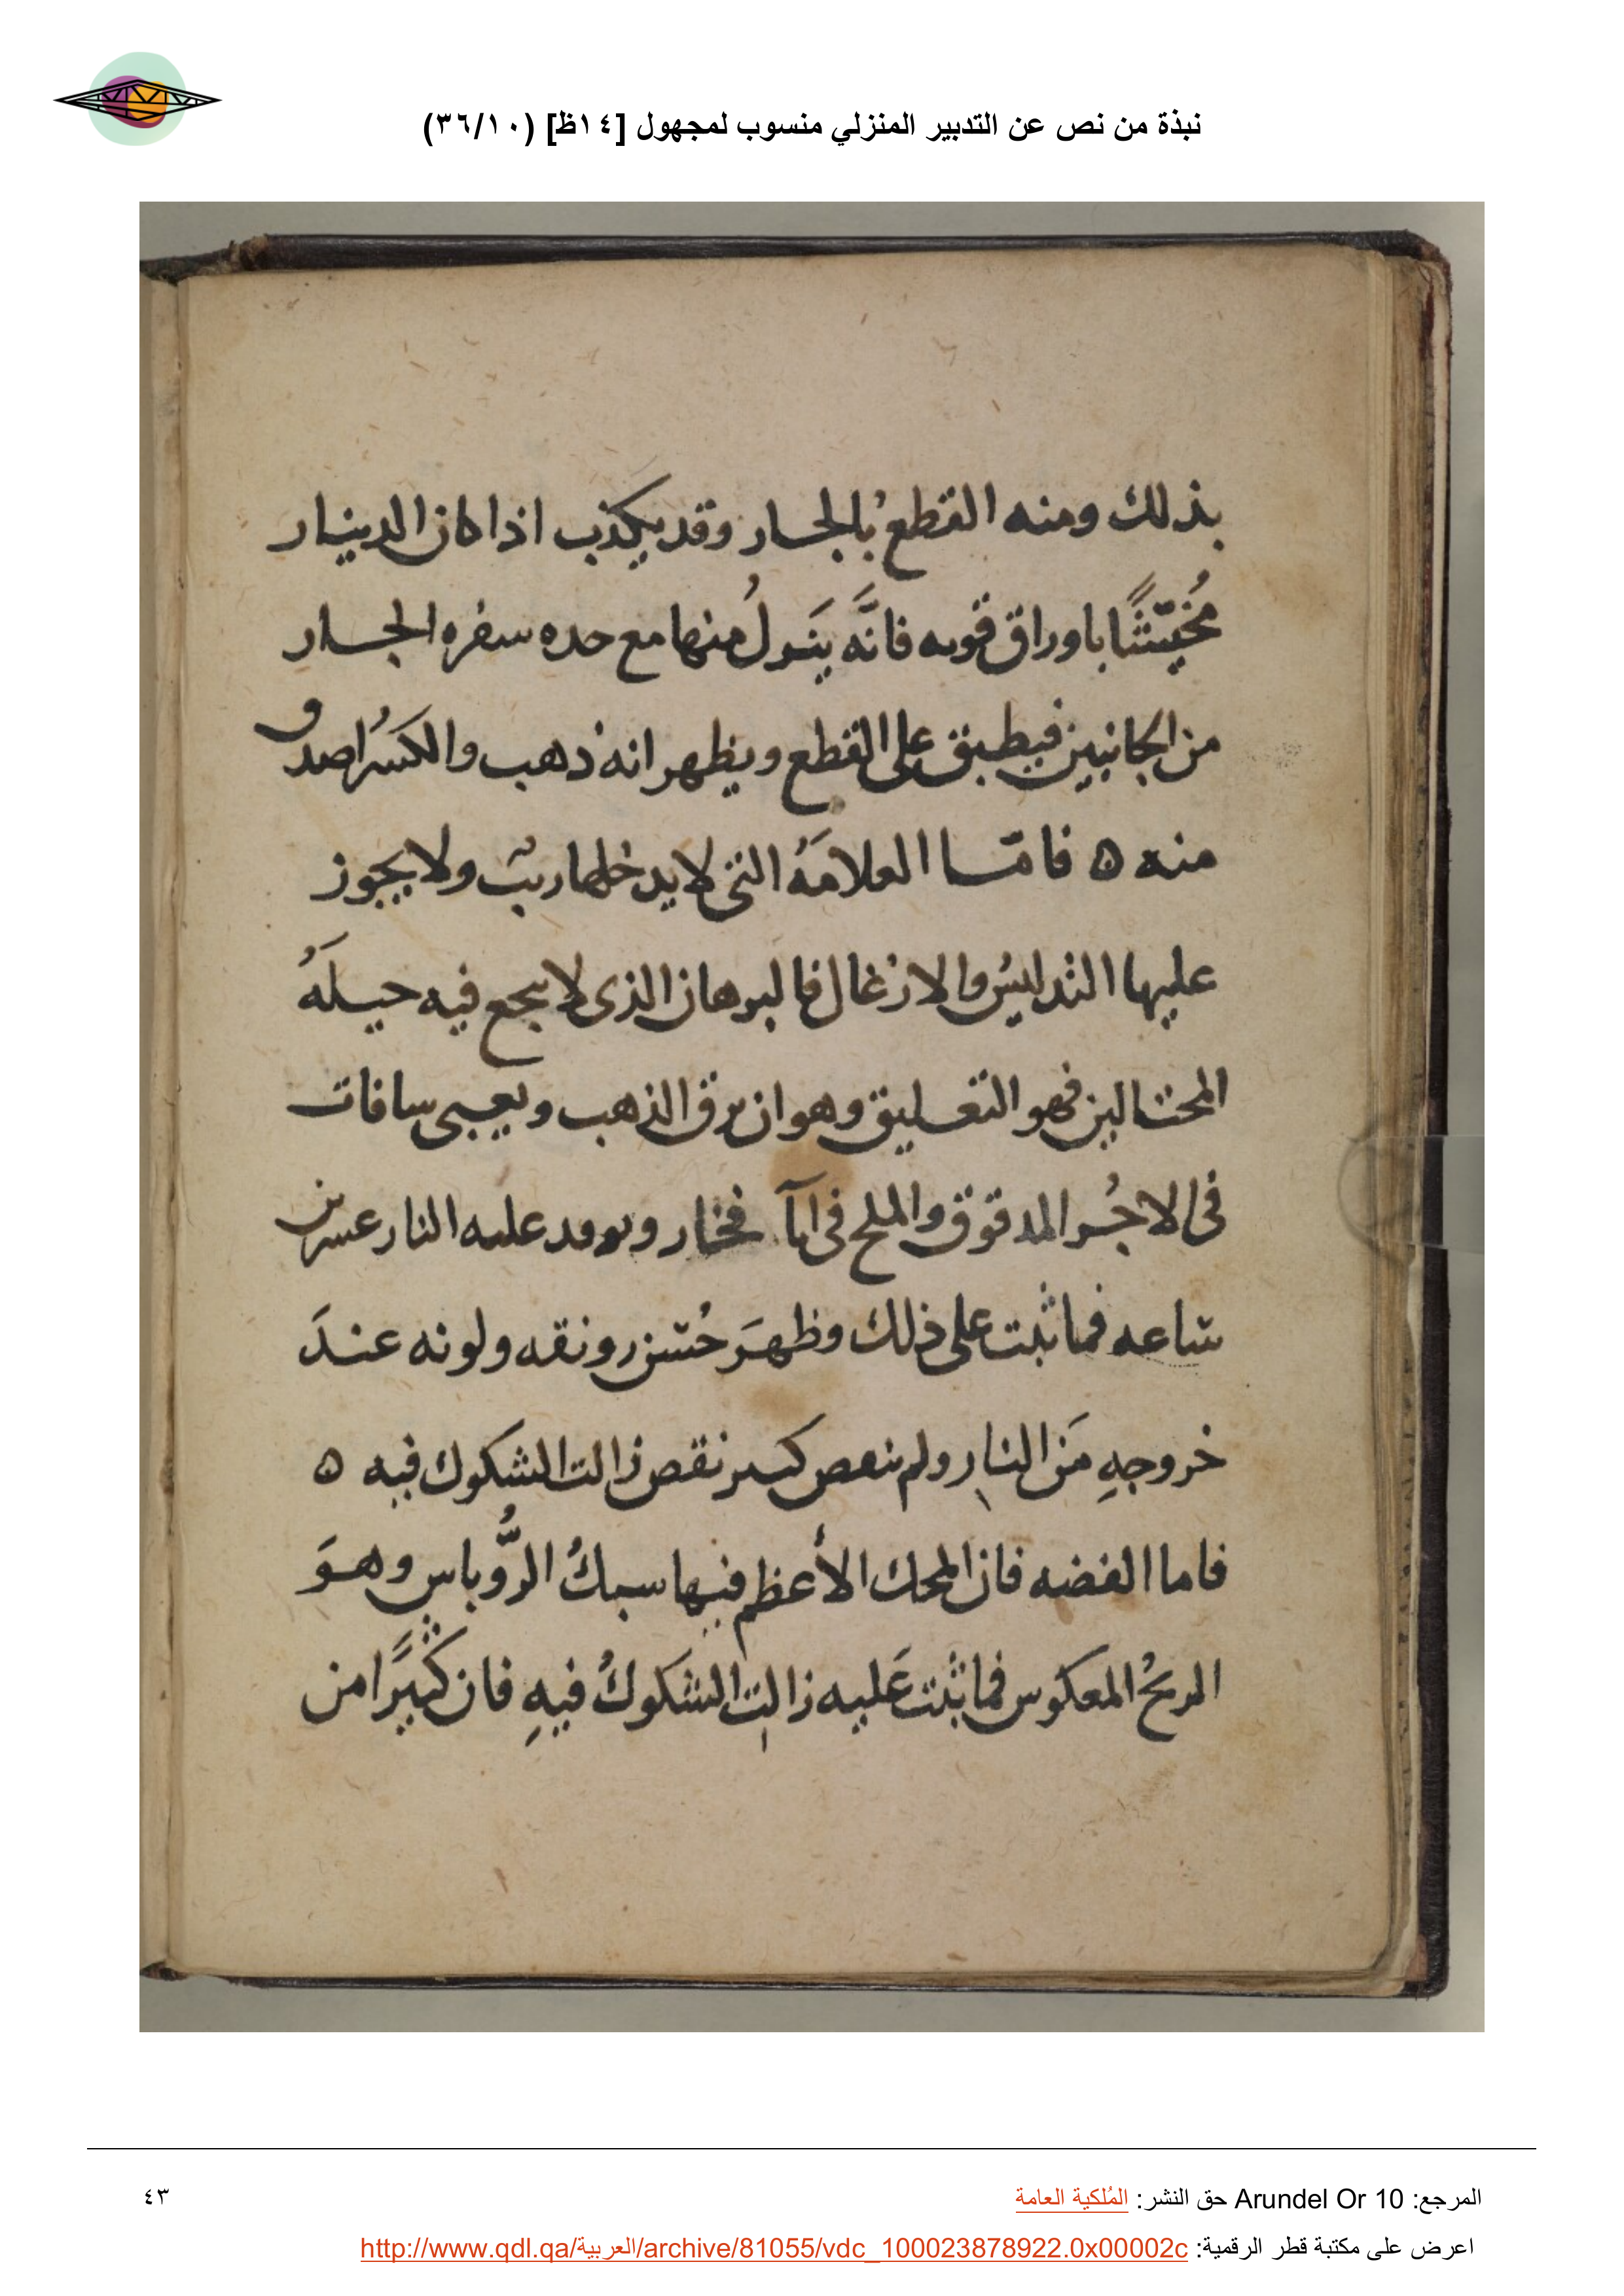 نبذة من نص عن التدبير المنزلي منسوب لمجهول [١٤ظ] (٣٦/١٠)
بذلك ومنه القطع بالجسار وقد يكذب اذا كان الدينار
مُخيّثًا باوراق قويه فانَّه ينزلُ منها مع حده سفره الجسار
من الجانبين فيطبق على القطع ويظهر انه ذهب والكسرُ اصدق
منه ه فامّا العلامَهُ التي لا يدخلها ريب ولا يجوز
عليها التدليسُ والازغال فالبرهان الذى لا ينجع فيه حيلَهُ
المحتالين فهو التعليق وهو ان يرق الذهب ويعبى سافات
فى الاجُر المدقوق والملح فى انآ فخار ويوقد عليه النار عشرين
ساعه فما ثبت على ذلك وظهرَ حُسن رونقه ولونه عندَ
خروجهِ مَن النار ولم ينقص كبير نقص زالت الشكوك فيه ه
فاما الفضه فان المحك الأعظم فيها سبكُ الرُّوباس وهوَ
المريحُ المعكوس فما ثبت عَليه زالت الشكوكُ فيهِ فان كثيرًا من
المرجع: Arundel Or 10 حق النشر: المُلكية العامة
٤٣
اعرض على مكتبة قطر الرقمية: http://www.qdl.qa/العربية/archive/81055/vdc_100023878922.0x00002c